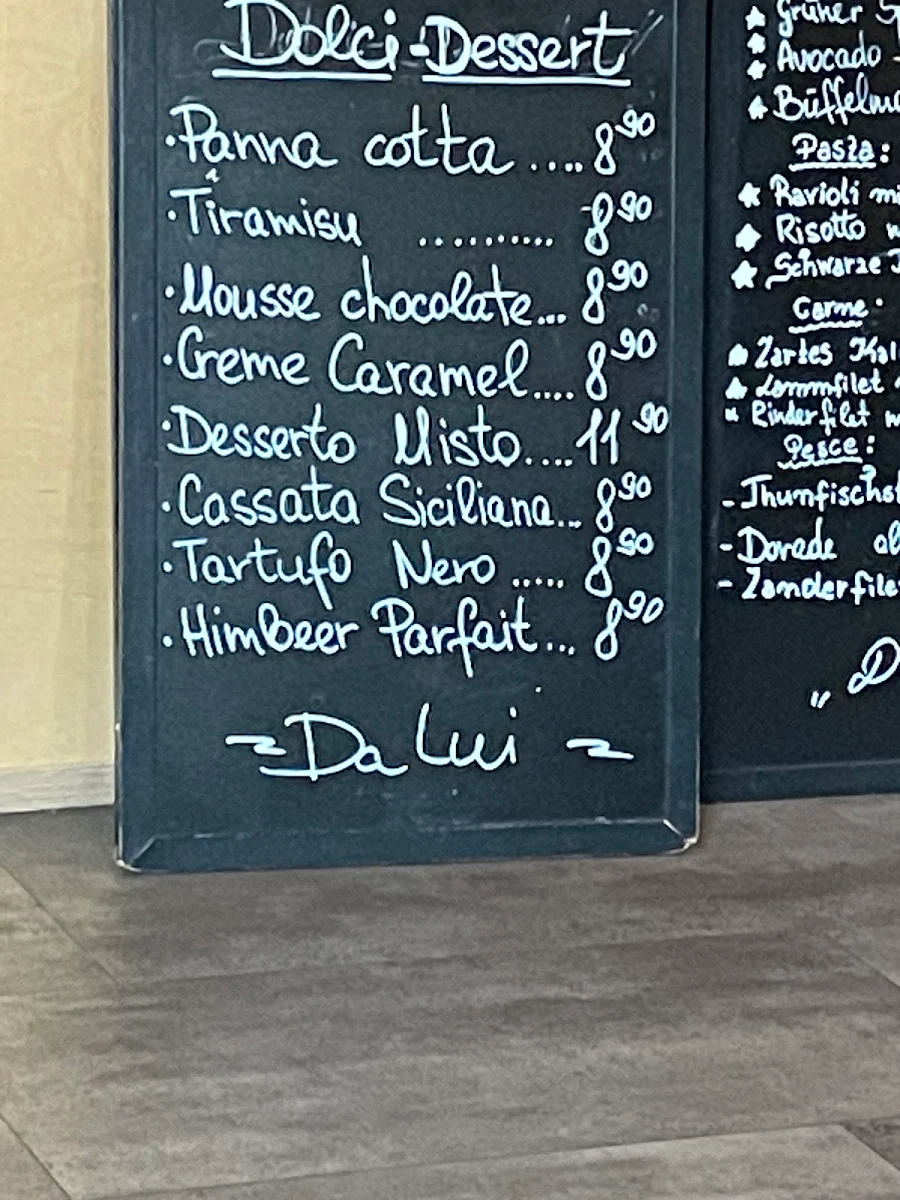 Dolci-Dessert
·Panna cotta .... 8⁹⁰
·Tiramisu .......... 8⁹⁰
·Mousse chocolate... 8⁹⁰
·Creme Caramel.... 8⁹⁰
·Desserto Misto.... 11⁹⁰
·Cassata Siciliana... 8⁹⁰
·Tartufo Nero ..... 8⁹⁰
·Himbeer Parfait... 8⁹⁰
~Da Lui~
★ Grüner
★ Avocado
★ Büffelm
Pasta:
★ Ravioli mi
★ Risotto
★ Schwarze
Carne:
Zartes Kal
Lammfilet
Rinderfilet
Pesce:
- Thunfischst
- Dorade al
- Zanderfile
„ D